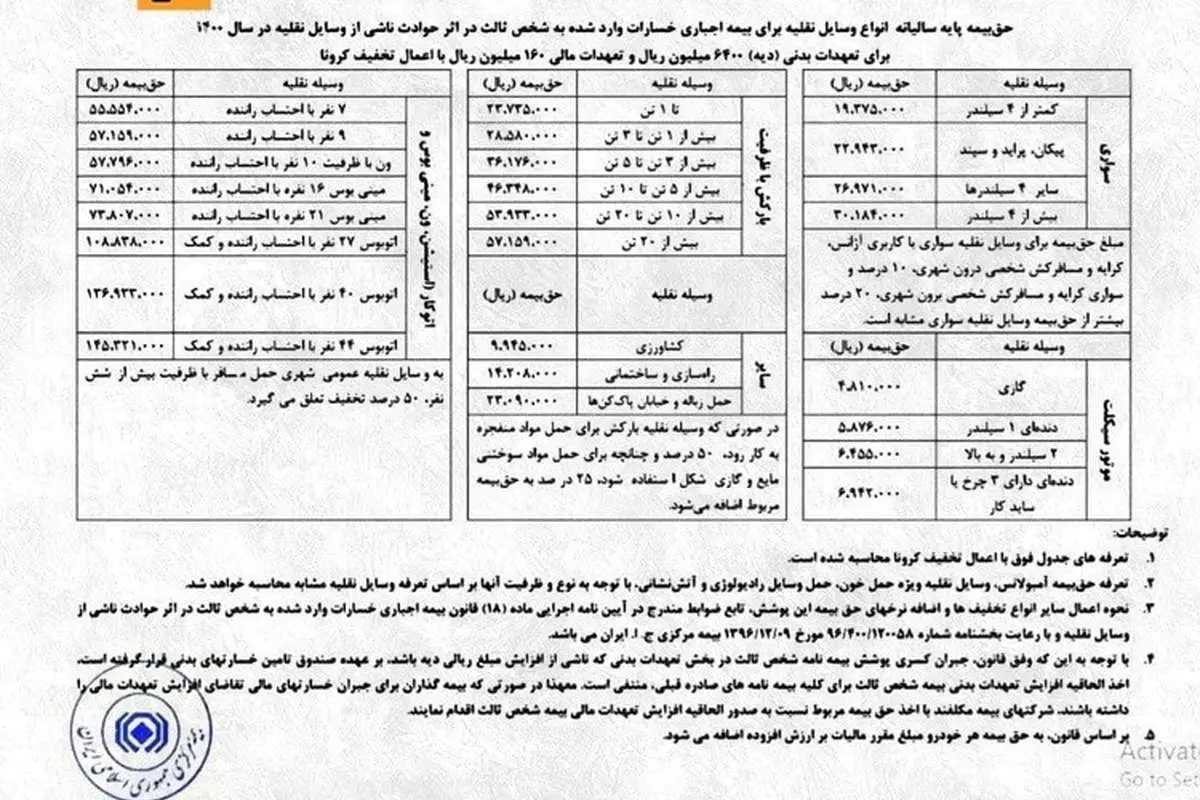 حق‌بیمه پایه سالیانه انواع وسایل نقلیه برای بیمه اجباری خسارات وارد شده به شخص ثالث در اثر حوادث ناشی از وسایل نقلیه در سال ۱۴۰۰
برای تعهدات بدنی (دیه) ۶۴۰۰ میلیون ریال و تعهدات مالی ۱۶۰ میلیون ریال با اعمال تخفیف کرونا
وسیله نقلیه حق‌بیمه (ریال)
سواری
کمتر از ۴ سیلندر ۱۹،۳۷۵،۰۰۰
پیکان، پراید و سپند ۲۲،۹۴۳،۰۰۰
سایر ۴ سیلندرها ۲۶،۹۷۱،۰۰۰
بیش از ۴ سیلندر ۳۰،۱۸۴،۰۰۰
مبلغ حق‌بیمه برای وسایل نقلیه سواری با کاربری آژانس،
کرایه و مسافرکش شخصی درون شهری، ۱۰ درصد و
سواری کرایه و مسافرکش شخصی برون شهری، ۲۰ درصد
بیشتر از حق‌بیمه وسایل نقلیه سواری مشابه است.
وسیله نقلیه حق‌بیمه (ریال)
موتور سیکلت
گازی ۴،۸۱۰،۰۰۰
دنده‌ای ۱ سیلندر ۵،۸۷۶،۰۰۰
۲ سیلندر و به بالا ۶،۴۵۵،۰۰۰
دنده‌ای دارای ۳ چرخ یا
ساید کار ۶،۹۴۲،۰۰۰
وسیله نقلیه حق‌بیمه (ریال)
بارکش با ظرفیت
تا ۱ تن ۲۳،۷۳۵،۰۰۰
بیش از ۱ تن تا ۳ تن ۲۸،۵۸۰،۰۰۰
بیش از ۳ تن تا ۵ تن ۳۶،۱۷۶،۰۰۰
بیش از ۵ تن تا ۱۰ تن ۴۶،۳۴۸،۰۰۰
بیش از ۱۰ تن تا ۲۰ تن ۵۳،۹۳۳،۰۰۰
بیش از ۲۰ تن ۵۷،۱۵۹،۰۰۰
وسیله نقلیه حق‌بیمه (ریال)
سایر
کشاورزی ۹،۹۴۵،۰۰۰
راه‌سازی و ساختمانی ۱۴،۲۰۸،۰۰۰
حمل زباله و خیابان پاک‌کن‌ها ۲۳،۰۹۰،۰۰۰
در صورتی که وسیله نقلیه بارکش برای حمل مواد منفجره
به کار رود، ۵۰ درصد و چنانچه برای حمل مواد سوختنی
مایع و گازی شکل استفاده شود، ۲۵ در صد به حق‌بیمه
مربوط اضافه می‌شود.
وسیله نقلیه حق‌بیمه (ریال)
اتوکار (استیشن، ون، مینی بوس و
۷ نفر با احتساب راننده ۵۵،۵۵۴،۰۰۰
۹ نفر با احتساب راننده ۵۷،۱۵۹،۰۰۰
ون با ظرفیت ۱۰ نفر با احتساب راننده ۵۷،۷۹۶،۰۰۰
مینی بوس ۱۶ نفره با احتساب راننده ۷۱،۰۵۴،۰۰۰
مینی بوس ۲۱ نفره با احتساب راننده ۷۳،۸۰۷،۰۰۰
اتوبوس ۲۷ نفر با احتساب راننده و کمک ۱۰۸،۸۳۸،۰۰۰
اتوبوس ۴۰ نفر با احتساب راننده و کمک ۱۳۶،۹۳۳،۰۰۰
اتوبوس ۴۴ نفر با احتساب راننده و کمک ۱۴۵،۳۲۱،۰۰۰
به وسایل نقلیه عمومی شهری حمل مسافر با ظرفیت بیش از شش
نفر، ۵۰ درصد تخفیف تعلق می گیرد.
توضیحات:
۱. تعرفه های جدول فوق با اعمال تخفیف کرونا محاسبه شده است.
۲. تعرفه حق‌بیمه آمبولانس، وسایل نقلیه ویژه حمل خون، حمل وسایل رادیولوژی و آتش‌نشانی، با توجه به نوع و ظرفیت آنها بر اساس تعرفه وسایل نقلیه مشابه محاسبه خواهد شد.
۳. نحوه اعمال سایر انواع تخفیف ها و اضافه نرخهای حق بیمه این پوشش، تابع ضوابط مندرج در آیین نامه اجرایی ماده (۱۸) قانون بیمه اجباری خسارات وارد شده به شخص ثالث در اثر حوادث ناشی از
وسایل نقلیه و با رعایت بخشنامه شماره ۹۶/۴۰۰/۱۲۰۰۵۸ مورخ ۱۳۹۶/۱۲/۰۹ بیمه مرکزی ج. ا. ایران می باشد.
۴. با توجه به این که وفق قانون، جبران کسری پوشش بیمه نامه شخص ثالث در بخش تعهدات بدنی که ناشی از افزایش مبلغ ریالی دیه باشد، بر عهده صندوق تامین خسارتهای بدنی قرار گرفته است،
اخذ الحاقیه افزایش تعهدات بدنی بیمه شخص ثالث برای کلیه بیمه نامه های صادره قبلی، منتفی است. معهذا در صورتی که بیمه گذاران برای جبران خسارتهای مالی تقاضای افزایش تعهدات مالی را
داشته باشند، شرکتهای بیمه مکلفند با اخذ حق بیمه مربوط نسبت به صدور الحاقیه افزایش تعهدات مالی بیمه شخص ثالث اقدام نمایند.
۵. بر اساس قانون، به حق بیمه هر خودرو مبلغ مقرر مالیات بر ارزش افزوده اضافه می شود.
بیمه مرکزی جمهوری اسلامی ایران
Activat
Go to Set